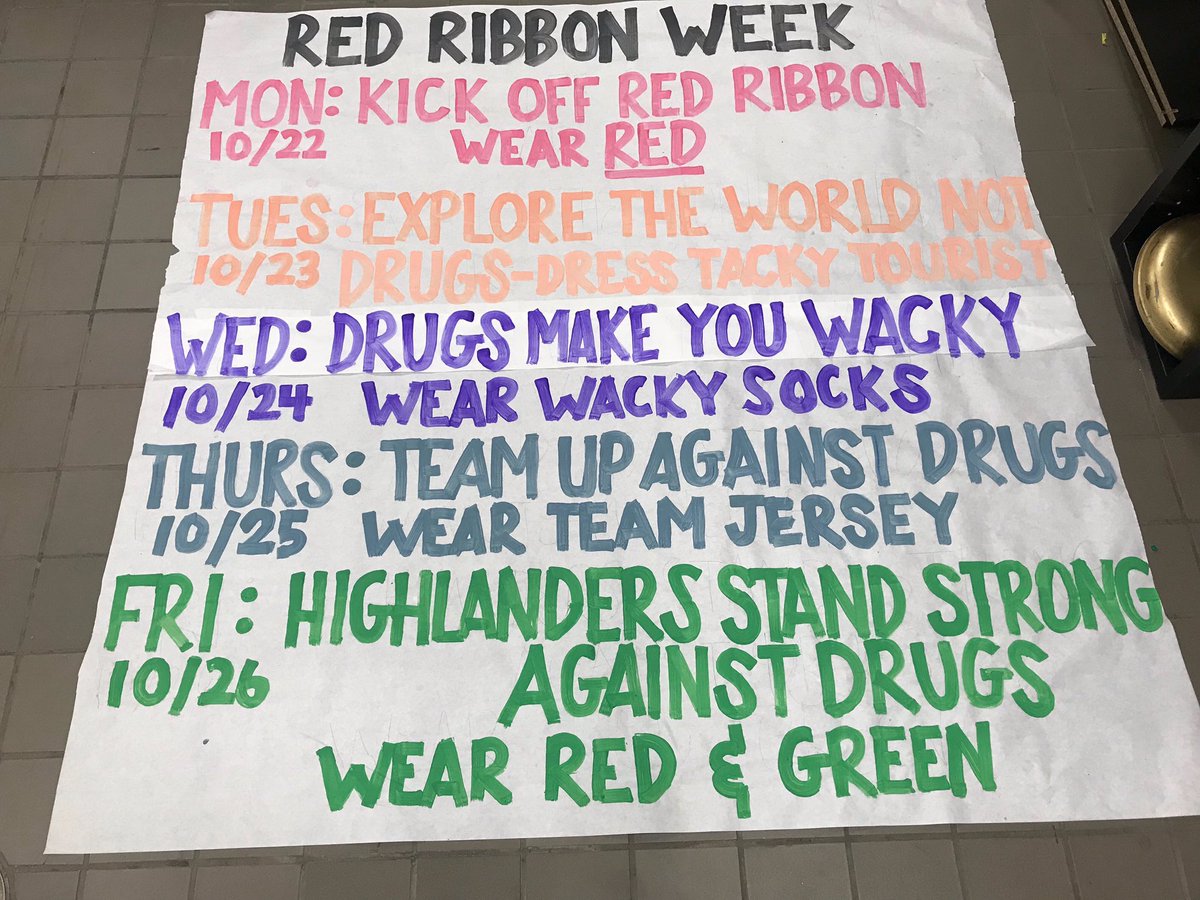 RED RIBBON WEEK
MON: KICK OFF RED RIBBON
10/22 WEAR RED
TUES: EXPLORE THE WORLD NOT
10/23 DRUGS-DRESS TACKY TOURIST
WED: DRUGS MAKE YOU WACKY
10/24 WEAR WACKY SOCKS
THURS: TEAM UP AGAINST DRUGS
10/25 WEAR TEAM JERSEY
FRI: HIGHLANDERS STAND STRONG
10/26 AGAINST DRUGS
WEAR RED & GREEN